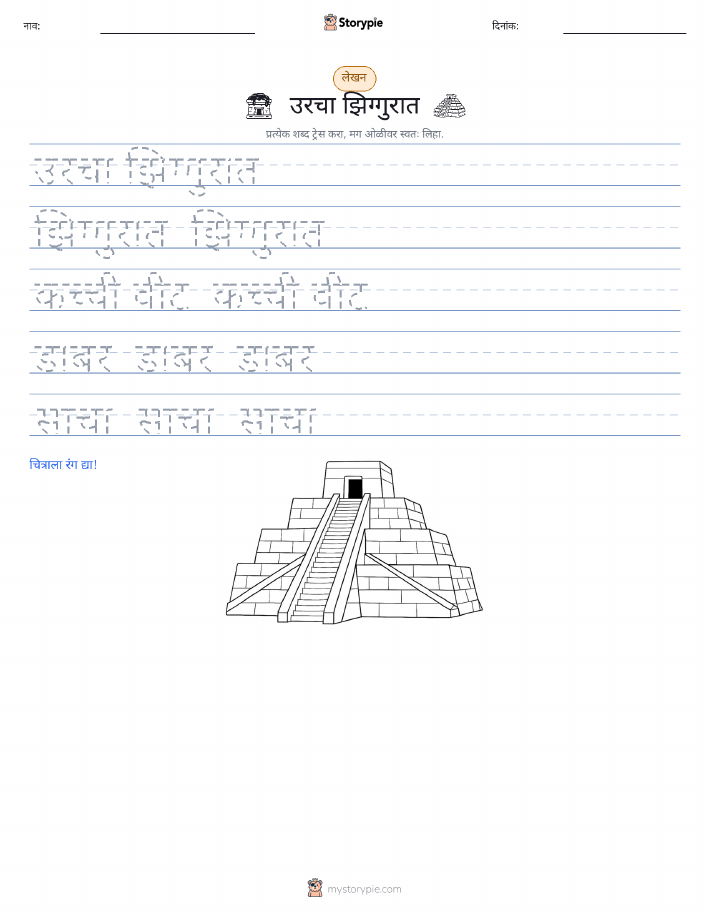 नाव:
Storypie
दिनांक:
लेखन
उरचा झिग्गुरात
प्रत्येक शब्द ट्रेस करा, मग ओळीवर स्वतः लिहा.
उरचा झिग्गुरात
झिग्गुरात झिग्गुरात
कच्ची वीट कच्ची वीट
डांबर डांबर डांबर
साचा साचा साचा
चित्राला रंग द्या!
mystorypie.com